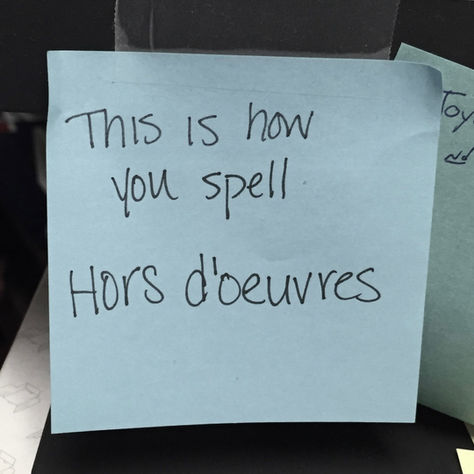 This is how
you spell
Hors d'oeuvres